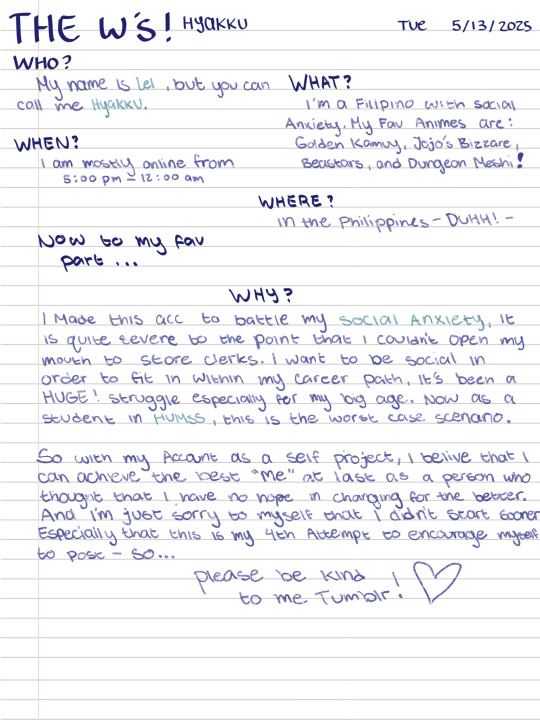 THE W's! HYAKKU
TUE 5/13/2025
WHO?
My name is Lei, but you can
call me Hyakku.
WHAT?
I'm a Filipino with social
Anxiety. My Fav Animes are:
Golden Kamuy, Jojo's Bizzare,
Beastars, and Dungeon Meshi!
WHEN?
I am mostly online from
5:00 pm - 12:00 am
WHERE?
in the Philippines - DUHH! -
Now to my fav
part ...
WHY?
I Made this acc to battle my social Anxiety, it
is quite severe to the point that I couldn't open my
mouth to store clerks. I want to be social in
order to fit in within my career path, it's been a
HUGE! struggle especially for my big age. Now as a
student in HUMSS, this is the worst case scenario.
So with my Account as a self project, I belive that I
can achieve the best "Me" at last as a person who
thought that I have no hope in changing for the better.
And I'm just sorry to myself that I didn't start sooner
Especially that this is my 4th Attempt to encourage myself
to post - so...
please be kind
to me Tumblr!